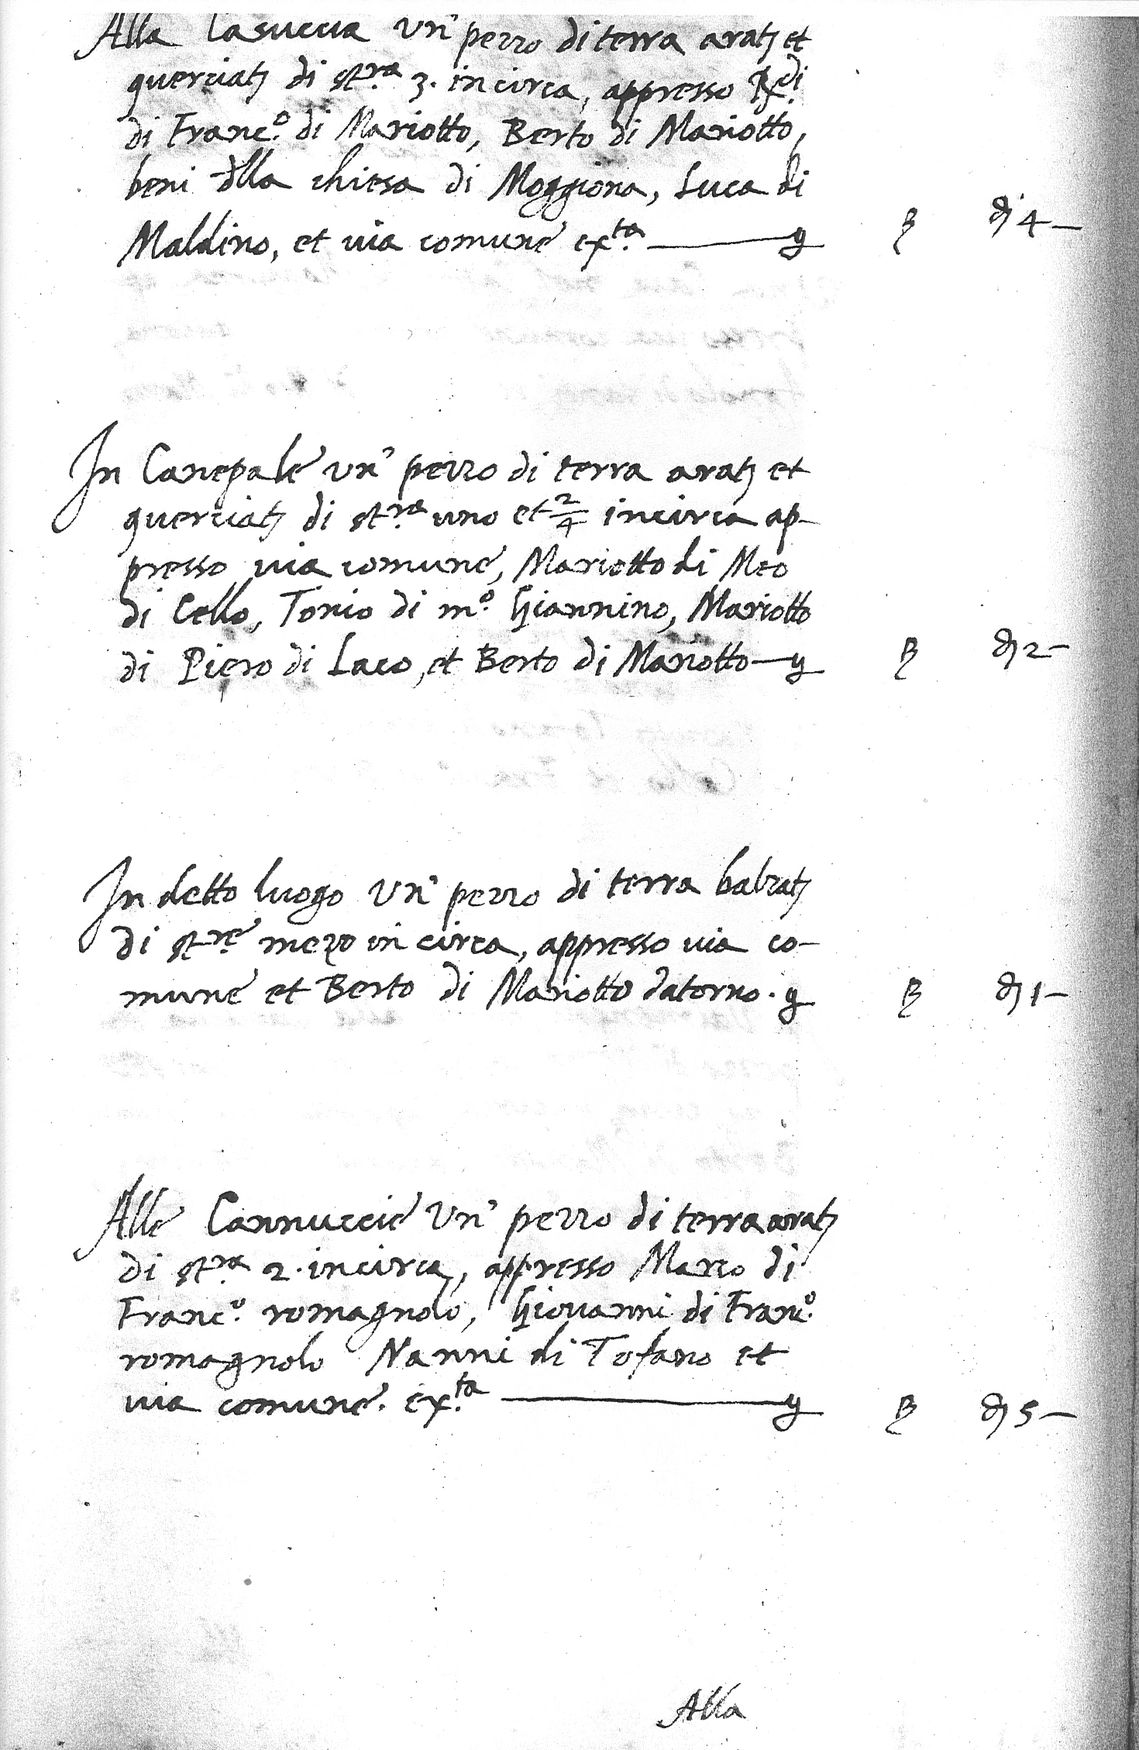 Alla Casuccia un' pezzo di terra arat. et
querciat. di st.ra 3. in circa, appresso R.di
di Franc.o di Mariotto, Berto di Mariotto,
beni dlla chiesa di Moggiona, Luca di
Maldino, et via comune ex.ta
4 —
In Canepale un' pezzo di terra arat. et
querciat. di st.ra uno et 2/4 incirca ap-
presso via comune, Mariotto di Meo
di Cello, Tonio di m.o Giannino, Mariotto
di Piero di Laco, et Berto di Mariotto —
2 —
In detto luogo un' pezzo di terra balzat.
di st.re mezo in circa, appresso via co-
mune et Berto di Mariotto datorno.
1 —
Alle Cannuccie un' pezzo di terra arat.
di st.ra 2. incirca, appresso Marco di
Franc.o romagnolo, Giovanni di Franc.o
romagnolo Nanni di Tofano et
via comune. ex.ta
5 —
Alla